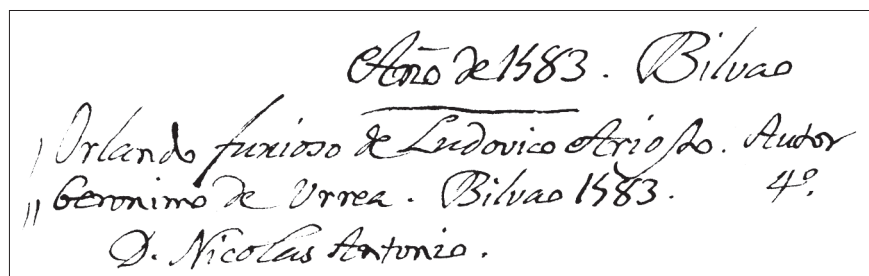 Año de 1583. Bilvao
„ Orlando furioso de Ludovico Ariosto. Autor
„ Geronimo de Urrea. Bilvao 1583. 4º.
D. Nicolas Antonio.